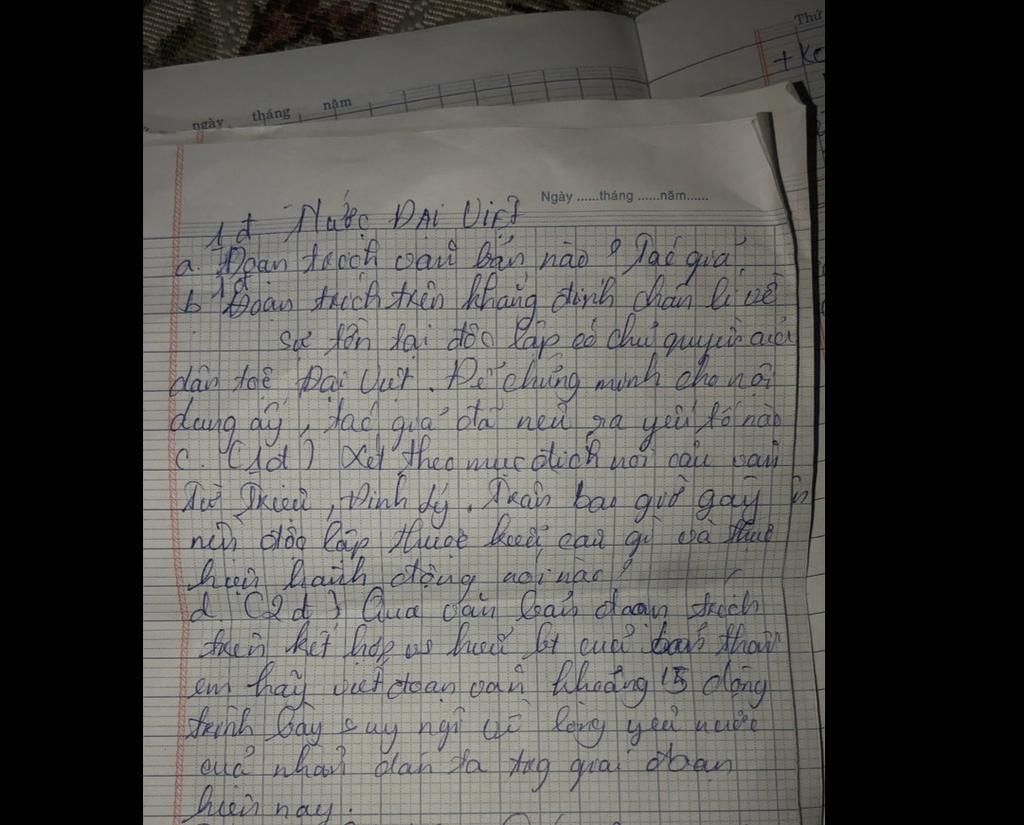 Thứ
+ Kc
ngày tháng năm
Ngày ......tháng ......năm......
1đ Nước Đại Việt
a. Đoạn trích văn bản nào? Tác giả
1đ
b Đoạn trích trên khẳng định chân lí về
sự tồn tại độc lập có chủ quyền của
dân tộc Đại Việt. Để chứng minh cho nội
dung ấy, tác giả đã nêu ra yếu tố nào
c. (1đ) Xét theo mục đích nói câu văn
Từ Triệu, Đinh Lý, Trần bao giờ gây
nền độc lập thuộc kiểu câu gì và thực
hiện hành động nói nào?
d. (2đ) Qua văn bản đoạn trích
trên kết hợp vs hiểu bt của bản thân
em hãy viết đoạn văn khoảng 15 dòng
trình bày suy nghĩ về lòng yêu nước
của nhân dân ta trg giai đoạn
hiện nay.